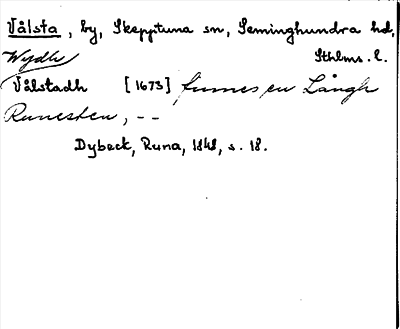 Vålsta, by, Skepptuna sn, Seminghundra hd,
Sthlms. l.
Wydh
Vålstadh [1673] finnes en Långh
Runesten, --
Dybeck, Runa, 1848, s. 18.